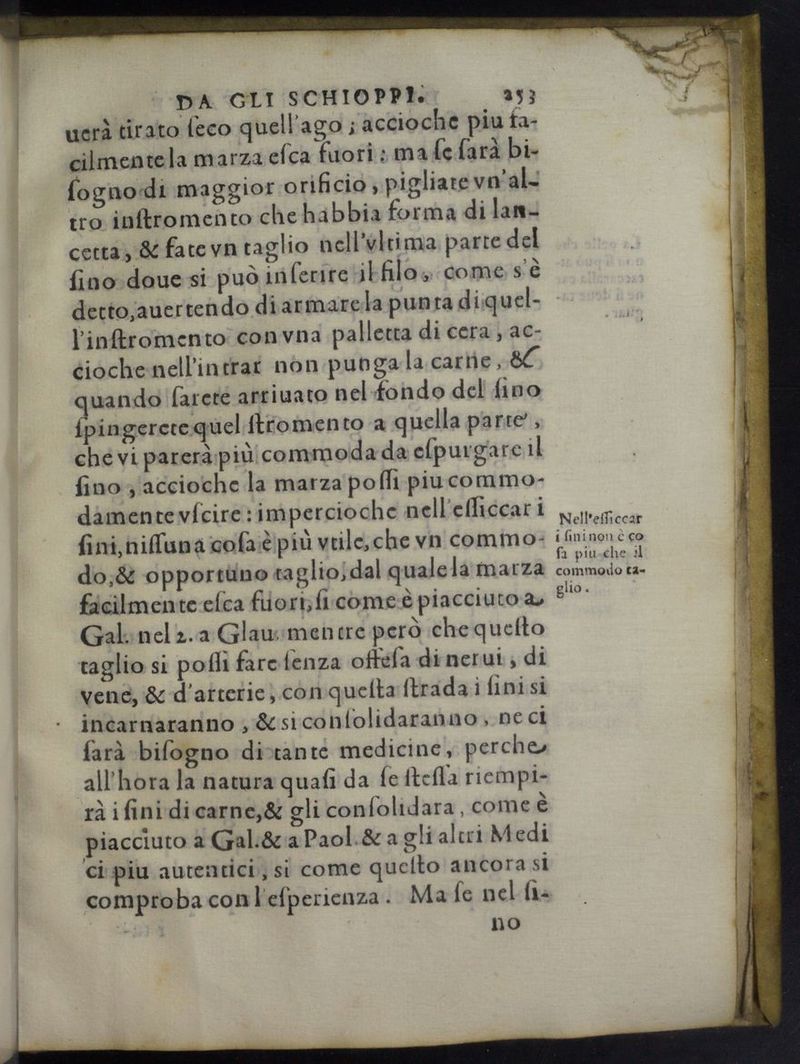 DA GLI SCHIOPPI. 253
uerà tirato ſeco quell'ago; accioche piu fa-
cilmente la marza eſca fuori: ma ſe ſarà bi-
ſogno di maggior orificio, pigliate vn'al-
tro inſtromento che habbia forma di lan-
cetta, & fate vn taglio nell'vltima parte del
ſino doue si può inſerire il filo, come s'è
detto, auertendo di armare la punta di quel-
l'inſtromento con vna palletta di cera, ac-
cioche nell'intrar non punga la carne, &
quando ſarete arriuato nel fondo del ſino
ſpingerete quel ſtromento a quella parte,
che vi parerà più commoda da eſpurgare il
ſino, accioche la marza poſſi piu commo-
damente vſcire: impercioche nell'eſſiccar i
ſini, niſſuna coſa è più vtile, che vn commo-
do, & opportuno taglio, dal quale la marza
facilmente eſca fuori, ſi come è piacciuto a
Gal. nel 2. a Glau. mentre però che queſto
taglio si poſſi fare ſenza offeſa di nerui, di
vene, & d'arterie, con queſta ſtrada i ſini si
incarnaranno, & si conſolidaranno, ne ci
ſarà biſogno di tante medicine, perche
all'hora la natura quaſi da ſe ſteſſa riempi-
rà i ſini di carne, & gli conſolidara, come è
piacciuto a Gal. & a Paol. & a gli altri Medi
ci piu autentici, si come queſto ancora si
comproba con l'eſperienza. Ma ſe nel ſi-
no
Nell'eſſiccar
i ſini non è co
ſa piu che il
commodo ta-
glio.